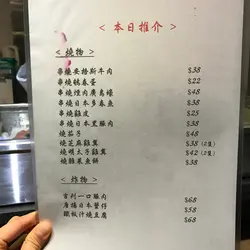 < 本日推介 >
< 燒物 >
串燒安格斯牛肉 $38
串燒鵪春蛋 $22
串燒煙肉廣島蠔 $48
串燒日本多春魚 $38
串燒雞皮 $25
串燒日本黑豚肉 $38
燒茄子 $48
燒芝麻雞翼 $38 (2隻)
燒明太子雞翼 $42 (2隻)
燒雞菜魚餅 $38
< 炸物 >
吉列一口豚肉 $68
唐揚日本薯仔 $58
銀板汁燒豆腐 $68